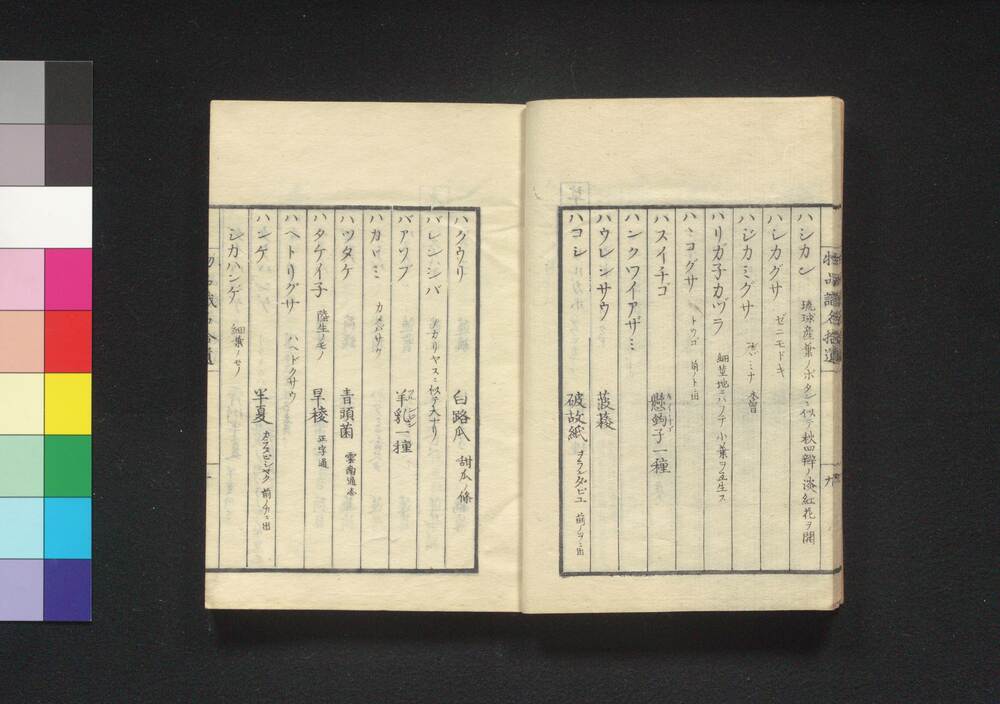 ハシカン 琉球産葉ノボタンニ似テ秋四瓣ノ淡紅花ヲ開
ハシカグサ ゼニモドキ
ハジカミグサ
ハリガ子カヅラ 細莖地ニハノテ小葉ヲ互生ス
ハコグサ トウゴ 前ノトニ出
ハスイチゴ 懸鉤子一種
ハンクワイアザミ
ハウレンサウ 菠薐
ハコシ 破故紙 ヲランダビユ 前ノヲニ出
物品識名拾遺 九
ハクウリ 白路瓜 甜瓜ノ條
バレンシバ カリヤスニ似テ大ナリ
バアソブ 羊乳一種
ハツタケ 青頭菌 雲南通志
ハタケイ子 陸生ノモノ 旱稜 正字通
ハヘトリグサ ハヘドクサウ
ハンゲ 半夏 カラスビシヤク 前ノカニ出
シカハンゲ 細葉ノモノ